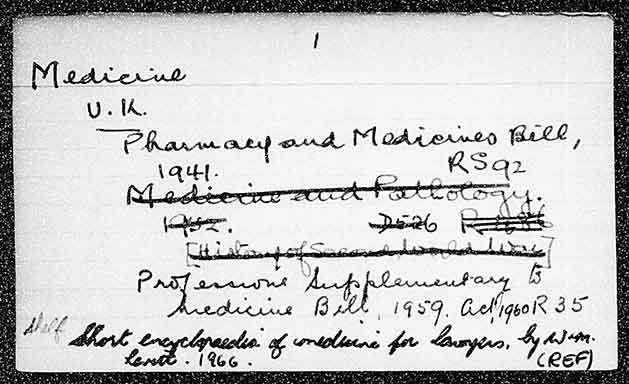 1
Medicine
U.K.
Pharmacy and Medicines Bill,
1941. RS92
Medicine and Pathology.
1952. D526
[History of Second World War]
Professions Supplementary to
medicine Bill, 1959. Act, 1960 R35
shelf
Short encyclopaedia of medicine for lawyers, by W.
1966. (REF)